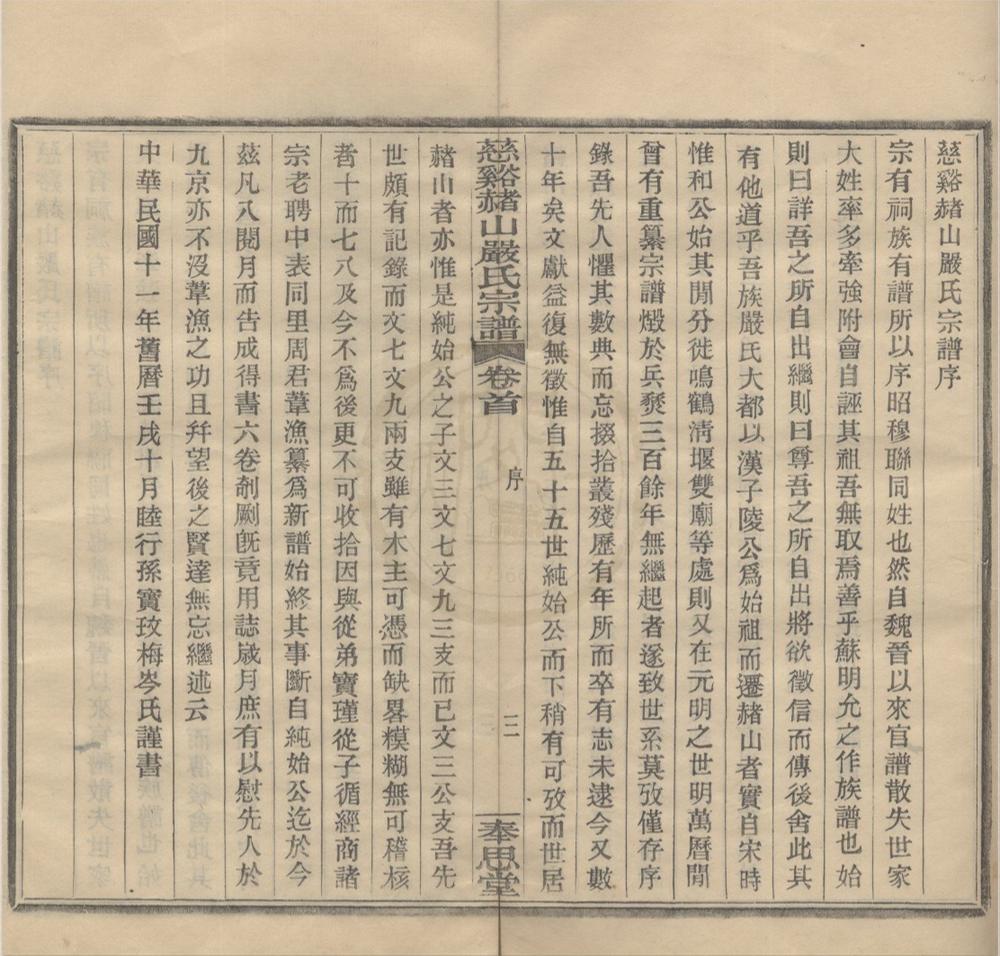 慈谿赭山嚴氏宗譜序
宗有祠族有譜所以序昭穆聯同姓也然自魏晉以來官譜散失世家
大姓率多牽強附會自誣其祖吾無取焉善乎蘇明允之作族譜也始
則曰詳吾之所自出繼則曰尊吾之所自出將欲徵信而傳後舍此其
有他道乎吾族嚴氏大都以漢子陵公爲始祖而遷赭山者實自宋時
惟和公始其閒分徙鳴鶴淸堰雙廟等處則又在元明之世明萬曆閒
曾有重纂宗譜燬於兵燹三百餘年無繼起者遂致世系莫攷僅存序
錄吾先人懼其數典而忘掇拾叢殘歷有年所而卒有志未逮今又數
十年矣文獻益復無徵惟自五十五世純始公而下稍有可攷而世居
慈谿赭山嚴氏宗譜 卷首 序 三 奉思堂
赭山者亦惟是純始公之子文三文七文九三支而已文三公支吾先
世頗有記錄而文七文九兩支雖有木主可憑而缺畧糢糊無可稽核
者十而七八及今不爲後更不可收拾因與從弟寶瑾從子循經商諸
宗老聘中表同里周君葦漁纂爲新譜始終其事斷自純始公迄於今
茲凡八閱月而告成得書六卷剞劂旣竟用誌歲月庶有以慰先人於
九京亦不沒葦漁之功且幷望後之賢達無忘繼述云
中華民國十一年舊曆壬戌十月睦行孫寶玫梅岑氏謹書